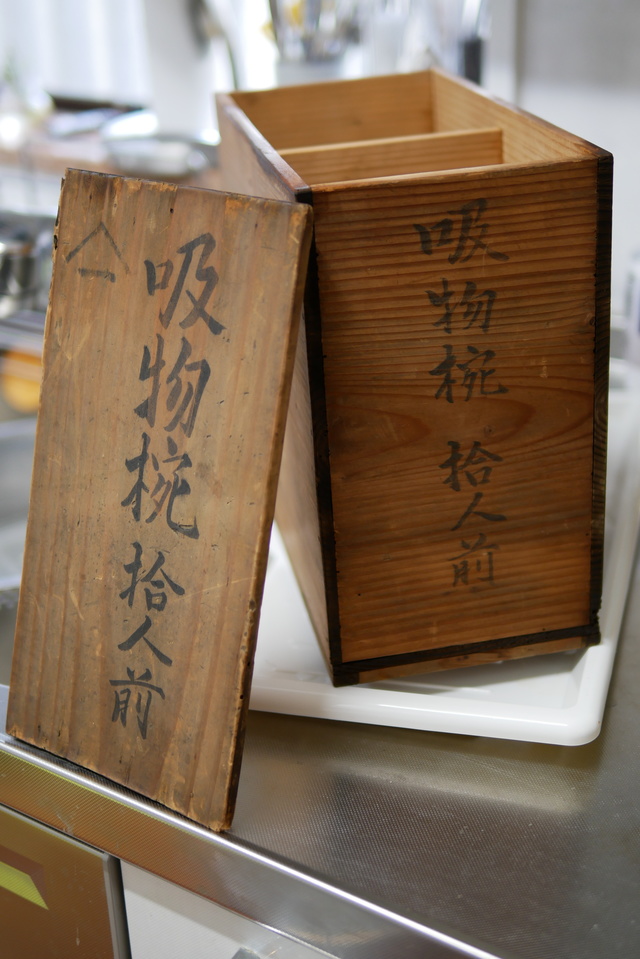 吸物椀 拾人前
吸物椀 拾人前